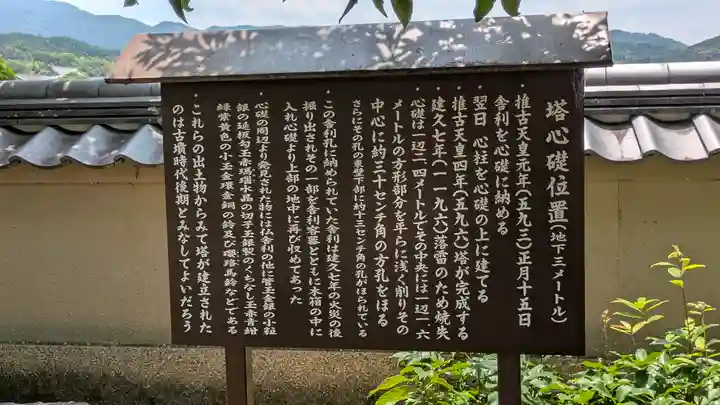 塔心礎位置(地下三メートル)
・推古天皇元年(五九三)正月十五日
舎利を心礎に納める
翌日 心柱を心礎の上に建てる
・推古天皇四年(五九六)塔が完成する
・建久七年(一一九六)落雷のため焼失
・心礎は一辺二、四メートルでその中央には一辺一、六
メートルの方形部分を平らに浅く削りその
中心に約三十センチ角の方孔をほる
さらにその孔の東壁下部に約十二センチ角の孔がほられている
・この舎利孔に納められていた舎利は建久七年の火災の後
掘り出されその一部を舎利容器とともに木箱の中に
入れ心礎より上部の地中に再び収めてあった
・心礎の周辺より発見された物には仏舎利の他に管玉金銀の小粒
銀の延板勾玉赤瑪瑙水晶の切子玉銀製のくちなし玉赤青紺
緑紫黄色の小玉金環金銅の鈴及び瓔珞馬鈴などである
・これらの出土物からみて塔が建立された
のは古墳時代後期とみなしてよいだろう